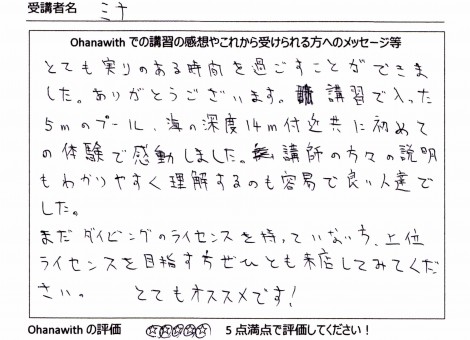 受講者名 ミナ
Ohanawith での講習の感想やこれから受けられる方へのメッセージ等
とても実りのある時間を過ごすことができま
した。ありがとうございます。講習で入った
5mのプール、海の深度14m付近共に初めて
の体験で感動しました。講師の方々の説明
もわかりやすく理解するのも容易で良い人達で
した。
まだダイビングのライセンスを持っていない方、上位
ライセンスを目指す方ぜひとも来店してみてくだ
さい。 とてもオススメです!
Ohanawith の評価 ☆☆☆☆☆ 5点満点で評価してください!